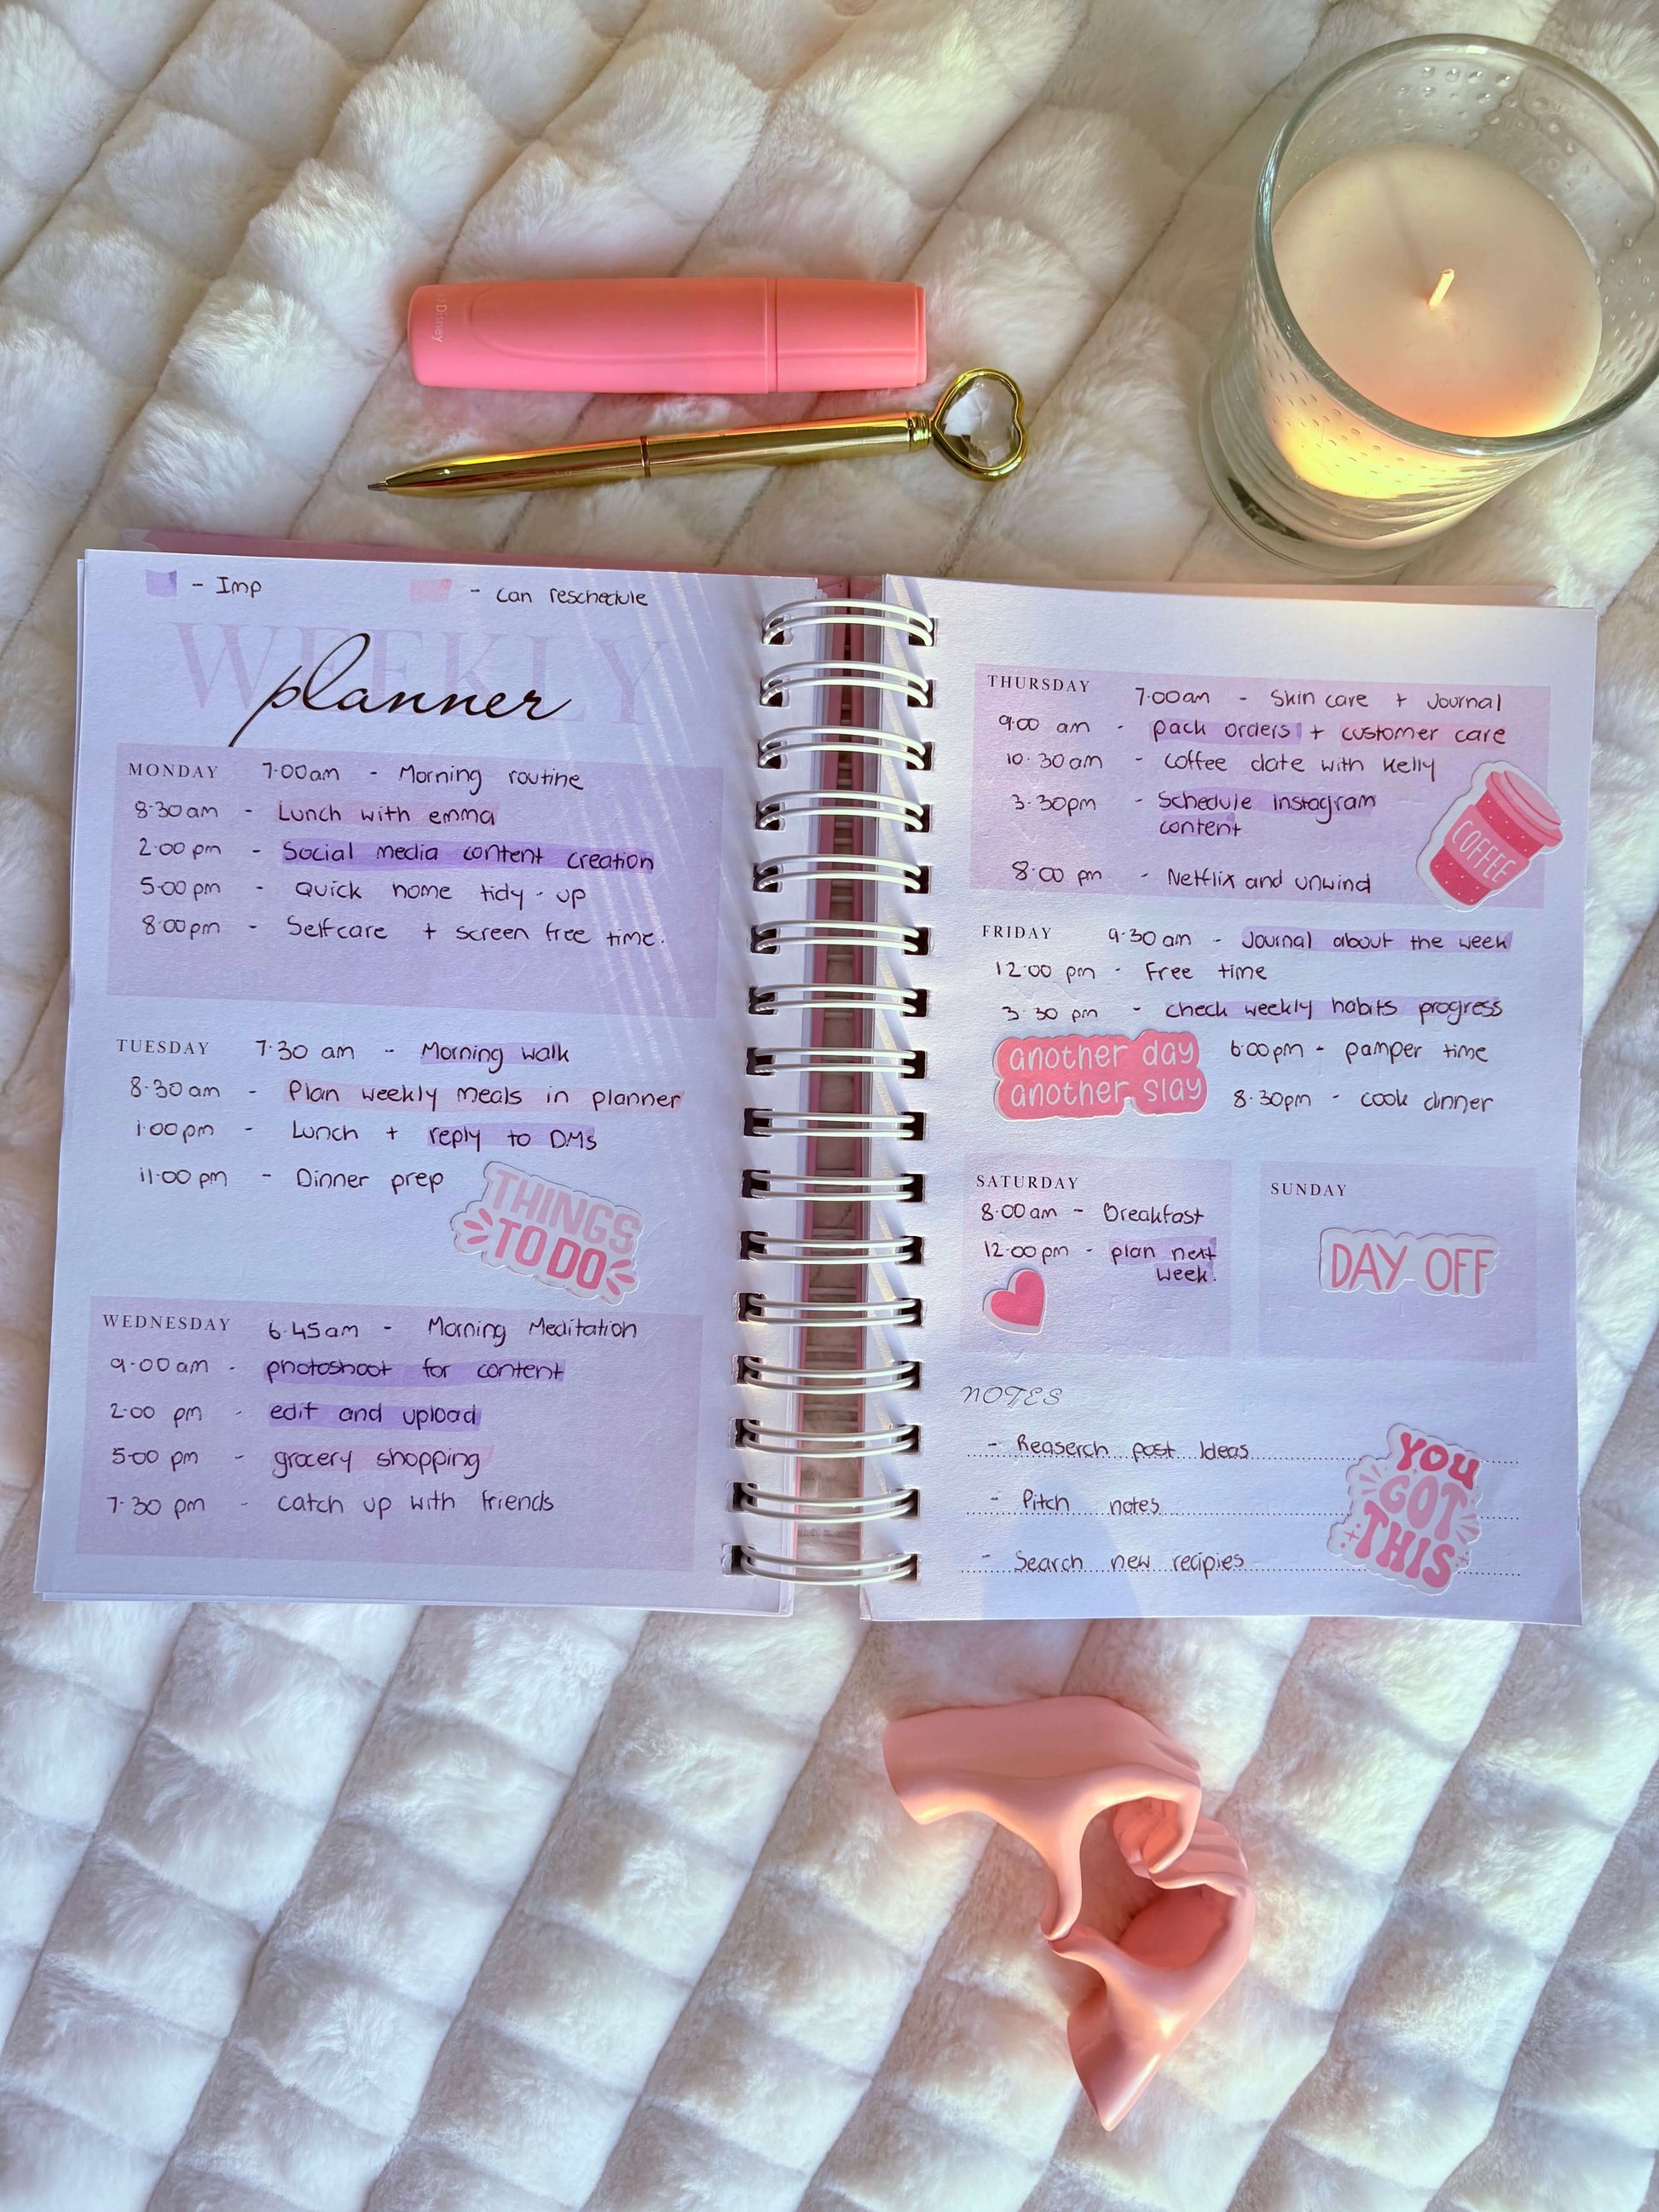 Disney
- Imp
- can reschedule
WEEKLY
planner
MONDAY 7:00am - Morning routine
8:30am - Lunch with emma
2:00 pm - Social media content creation
5:00pm - Quick home tidy-up
8:00pm - Selfcare + screen free time.
TUESDAY 7:30 am - Morning walk
8:30am - Plan weekly meals in planner
1:00pm - Lunch + reply to DMs
11:00pm - Dinner prep
THINGS
TO DO
WEDNESDAY 6:45am - Morning Meditation
9:00am - photoshoot for content
2:00 pm - edit and upload
5:00 pm - grocery shopping
7:30 pm - catch up with friends
THURSDAY 7:00am - Skin care + Journal
9:00 am - pack orders + customer care
10:30am - coffee date with Kelly
3:30pm - Schedule Instagram
content
COFFEE
8:00 pm - Netflix and unwind
FRIDAY 9:30am - Journal about the week
12:00 pm - Free time
3:30 pm - check weekly habits progress
another day
another slay
6:00pm - pamper time
8:30pm - cook dinner
SATURDAY
8:00am - Breakfast
12:00pm - plan next
week.
SUNDAY
DAY OFF
NOTES
- Reaserch post Ideas
- Pitch notes
- Search new recipies
YOU
GOT
THIS